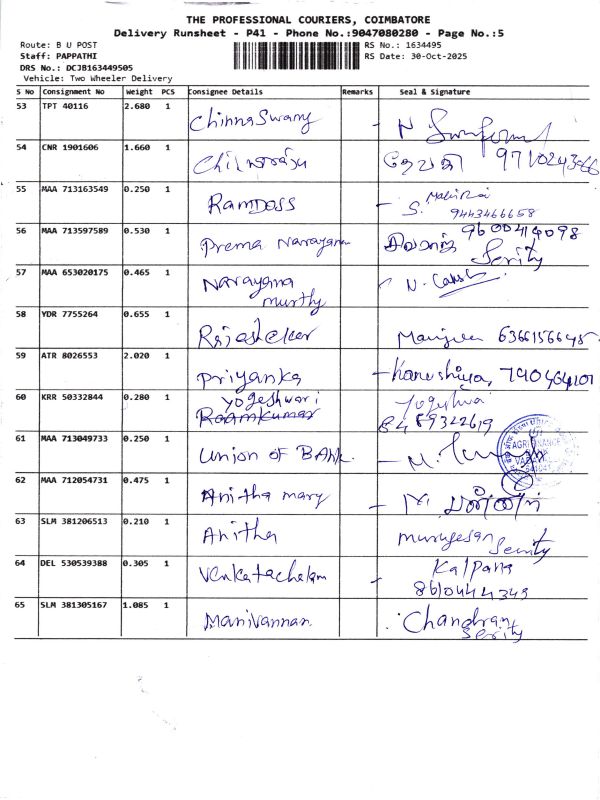 THE PROFESSIONAL COURIERS, COIMBATORE
Delivery Runsheet - P41 - Phone No.:9047080280 - Page No.:5
Route: B U POST RS No.: 1634495
Staff: PAPPATHI RS Date: 30-Oct-2025
DRS No.: DCJB163449505
Vehicle: Two Wheeler Delivery
S No Consignment No Weight PCS Consignee Details Remarks Seal & Signature
53 TPT 40116 2.680 1 Chinnaswamy
54 CNR 1901606 1.660 1 தேவகி
55 MAA 713163549 0.250 1 Ramdoss S.
9443466658
56 MAA 713597589 0.530 1 Prema Narayanan 9600414098
Serity
57 MAA 653020175 0.465 1 Narayana
murthy
58 YDR 7755264 0.655 1 Rajashekar
59 ATR 8026553 2.020 1 Priyanka
60 KRR 50332844 0.280 1 Yogeshwari
Raamkumar 8489322619
61 MAA 713049733 0.250 1 Union of BANK. M.
62 MAA 712054731 0.475 1 Anitha mary
63 SLM 381206513 0.210 1 Anitha murugesan
Serity
64 DEL 530539388 0.305 1 Venkatachalam Kalpana
8610444349
65 SLM 381305167 1.085 1 Manivannan Chandran
Serity